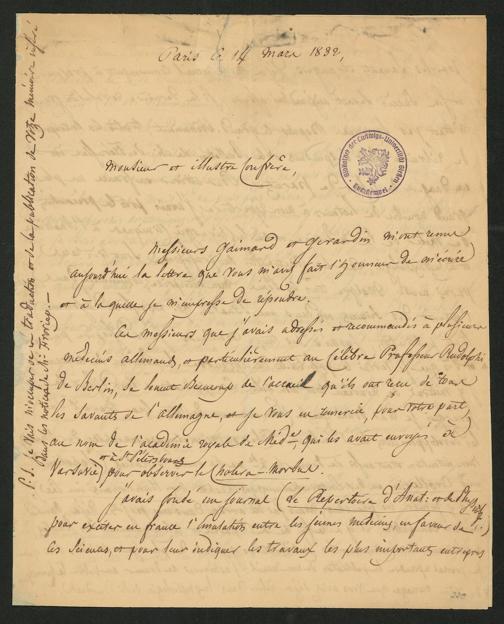 Paris le 14 mars 1832,
Monsieur et illustre Confrère,
Messieurs Gaimard et Gerardin m'ont remis
aujourd'hui la lettre que vous m'avez fait l'honneur de m'écrire
et à laquelle je m'empresse de répondre.
Ces messieurs que j'avais adressés et recommandés à plusieurs
médecins allemands, et particulièrement au célèbre Professeur Rudolphi
de Berlin, se louent beaucoup de l'accueil qu'ils ont reçu de tous
les savants de l'allemagne, et je vous en remercie, pour votre part,
au nom de l'académie royale de Med.ne, qui les avait envoyés à
et à St Petersbourg
Varsovie pour observer le Cholera-Morbus.
J'avais fondé un journal (Le Repertoire d'Anat. et de Phys.
pour exciter en france l'émulation entre les jeunes médecins, en faveur de
ces sciences, et pour leur indiquer les travaux les plus importants entrepris
P.S. je vais m'occuper de la traduction et de la publication de votre mémoire
dans les notices de Mr Froriep.